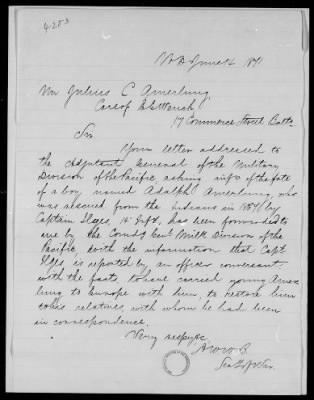 4283
June 14
Mr Julius C Amerlung,
Care of
17 Commerce Street Balto
Sir.
Your letter addressed to
the Adjutant General of the Military
Division of the Pacific, asking info of the fate
of a boy named Adolph Amerlung, who
was rescued from the Indians in 1871 by
Captain Ilges, Inft, has been forwarded to
me by the Comdg Genl Milt Division of the
Pacific, with the information that Capt
Ilges is reported by an officer conversant
with the facts, to have carried young Amer
lung to Europe with him, to restore him
to his relatives with whom he had been
in correspondence.
Very respy &c